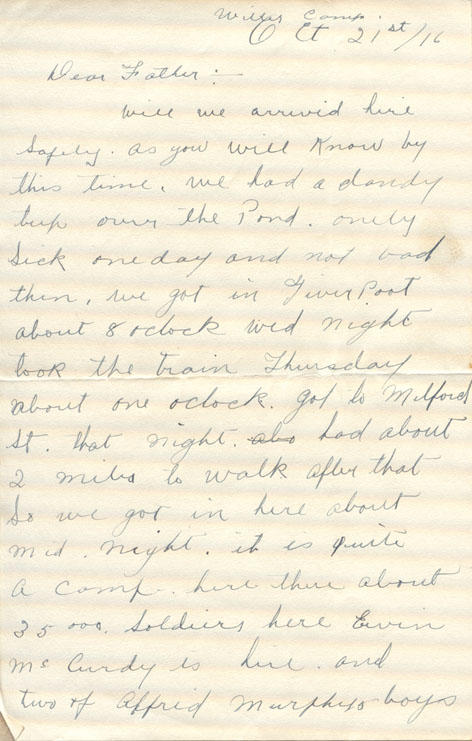 Camp.
Oct 21st/16
Dear Father :-
Will we arrivid hire
Safely. as you will Know by
this time. we had a dandy
trip over the Pond. onely
Sick one day and not bad
then, we got in Liverpool
about 8 oclock wed night
took the train Thursday
about one oclock. got to Milford
St. that night. also had about
2 miles to walk after that
So we got in here about
mid. night. it is quite
a camp. here there about
35 000. Soldiers here Ervin
Mc Curdy is hire. and
two of Alffrid Murphys boys